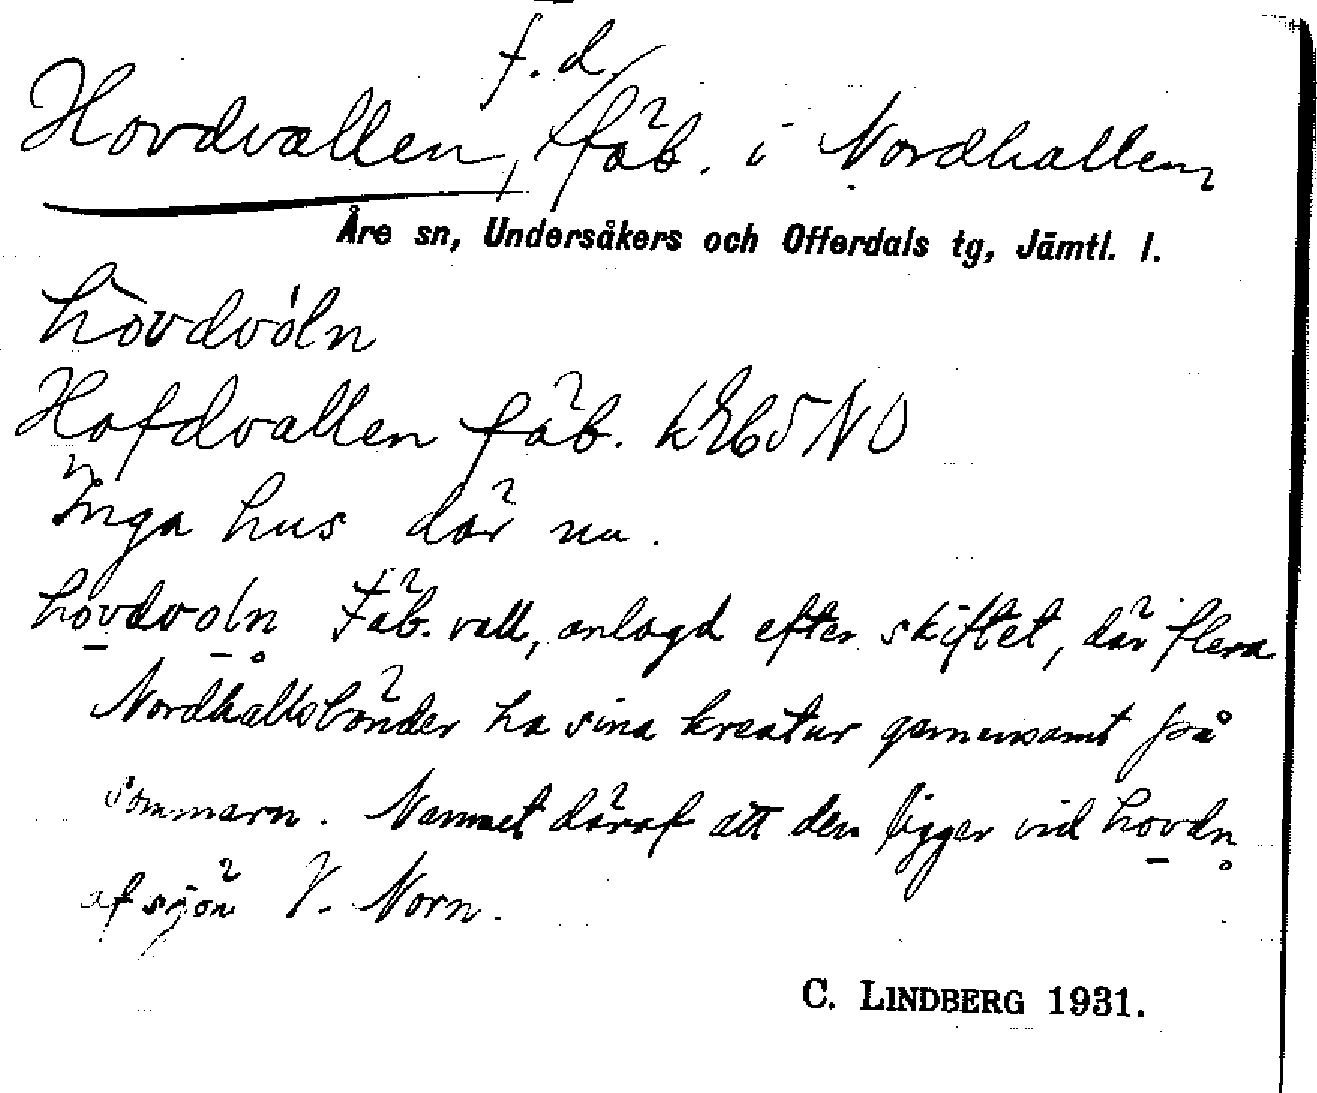 f. d.
Hovdvallen, fäb. i Nordhallen
Åre sn, Undersåkers och Offerdals tg, Jämtl. l.
hòvdvóln
Hofdvallen fäb. kEb5NO
Inga hus där nu.
hovdvoln Fäb. vall, anlagd efter skiftet, där flera
Nordhallsbönder ha sina kreatur gemensamt på
sommarn. Namnet däraf att den ligger vid hovdn
af sjön V. Norn.
C. LINDBERG 1931.